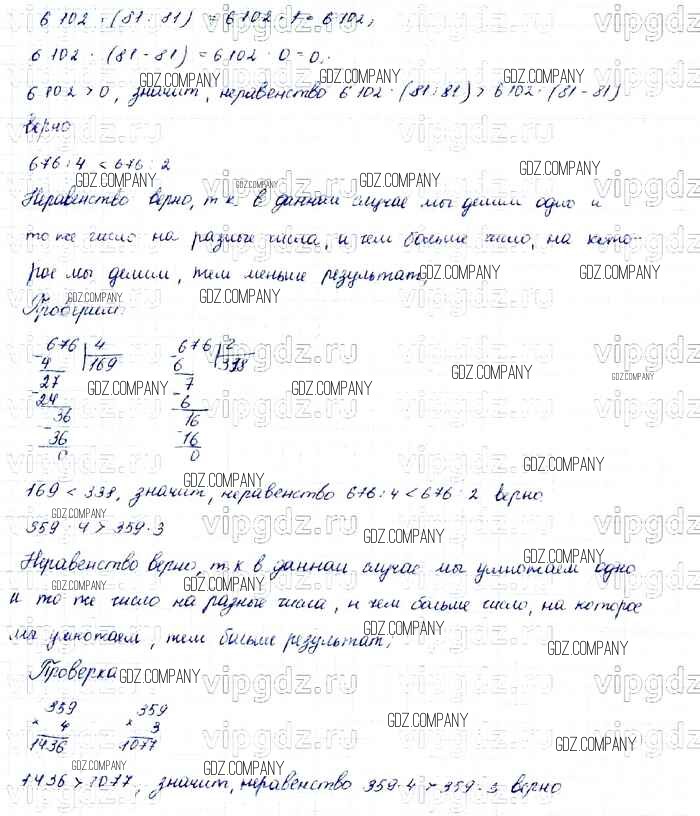 6 102 · (81 : 81) = 6 102 · 1 = 6 102;
6 102 · (81 - 81) = 6 102 · 0 = 0.
6 102 > 0, значит, неравенство 6 102 · (81 : 81) > 6 102 · (81 - 81)
верно
676 : 4 < 676 : 2
Неравенство верно, т.к. в данном случае мы делим одно и
то же число на разные числа, и чем больше число, на кото-
рое мы делим, тем меньше результат;
Проверим:
676 4 676 2
4 169 6 338
27 7
24 6
36 16
36 16
0 0
169 < 338, значит, неравенство 676 : 4 < 676 : 2 верно
359 · 4 > 359 · 3
Неравенство верно, т.к в данном случае мы умножаем одно
и то же число на разные числа, и чем больше число, на которое
мы умножаем, тем больше результат;
Проверка
359 359
× 4 × 3
1436 1077
1436 > 1077, значит, неравенство 359 · 4 > 359 · 3 верно
vipgdz.ru
GDZ.COMPANY